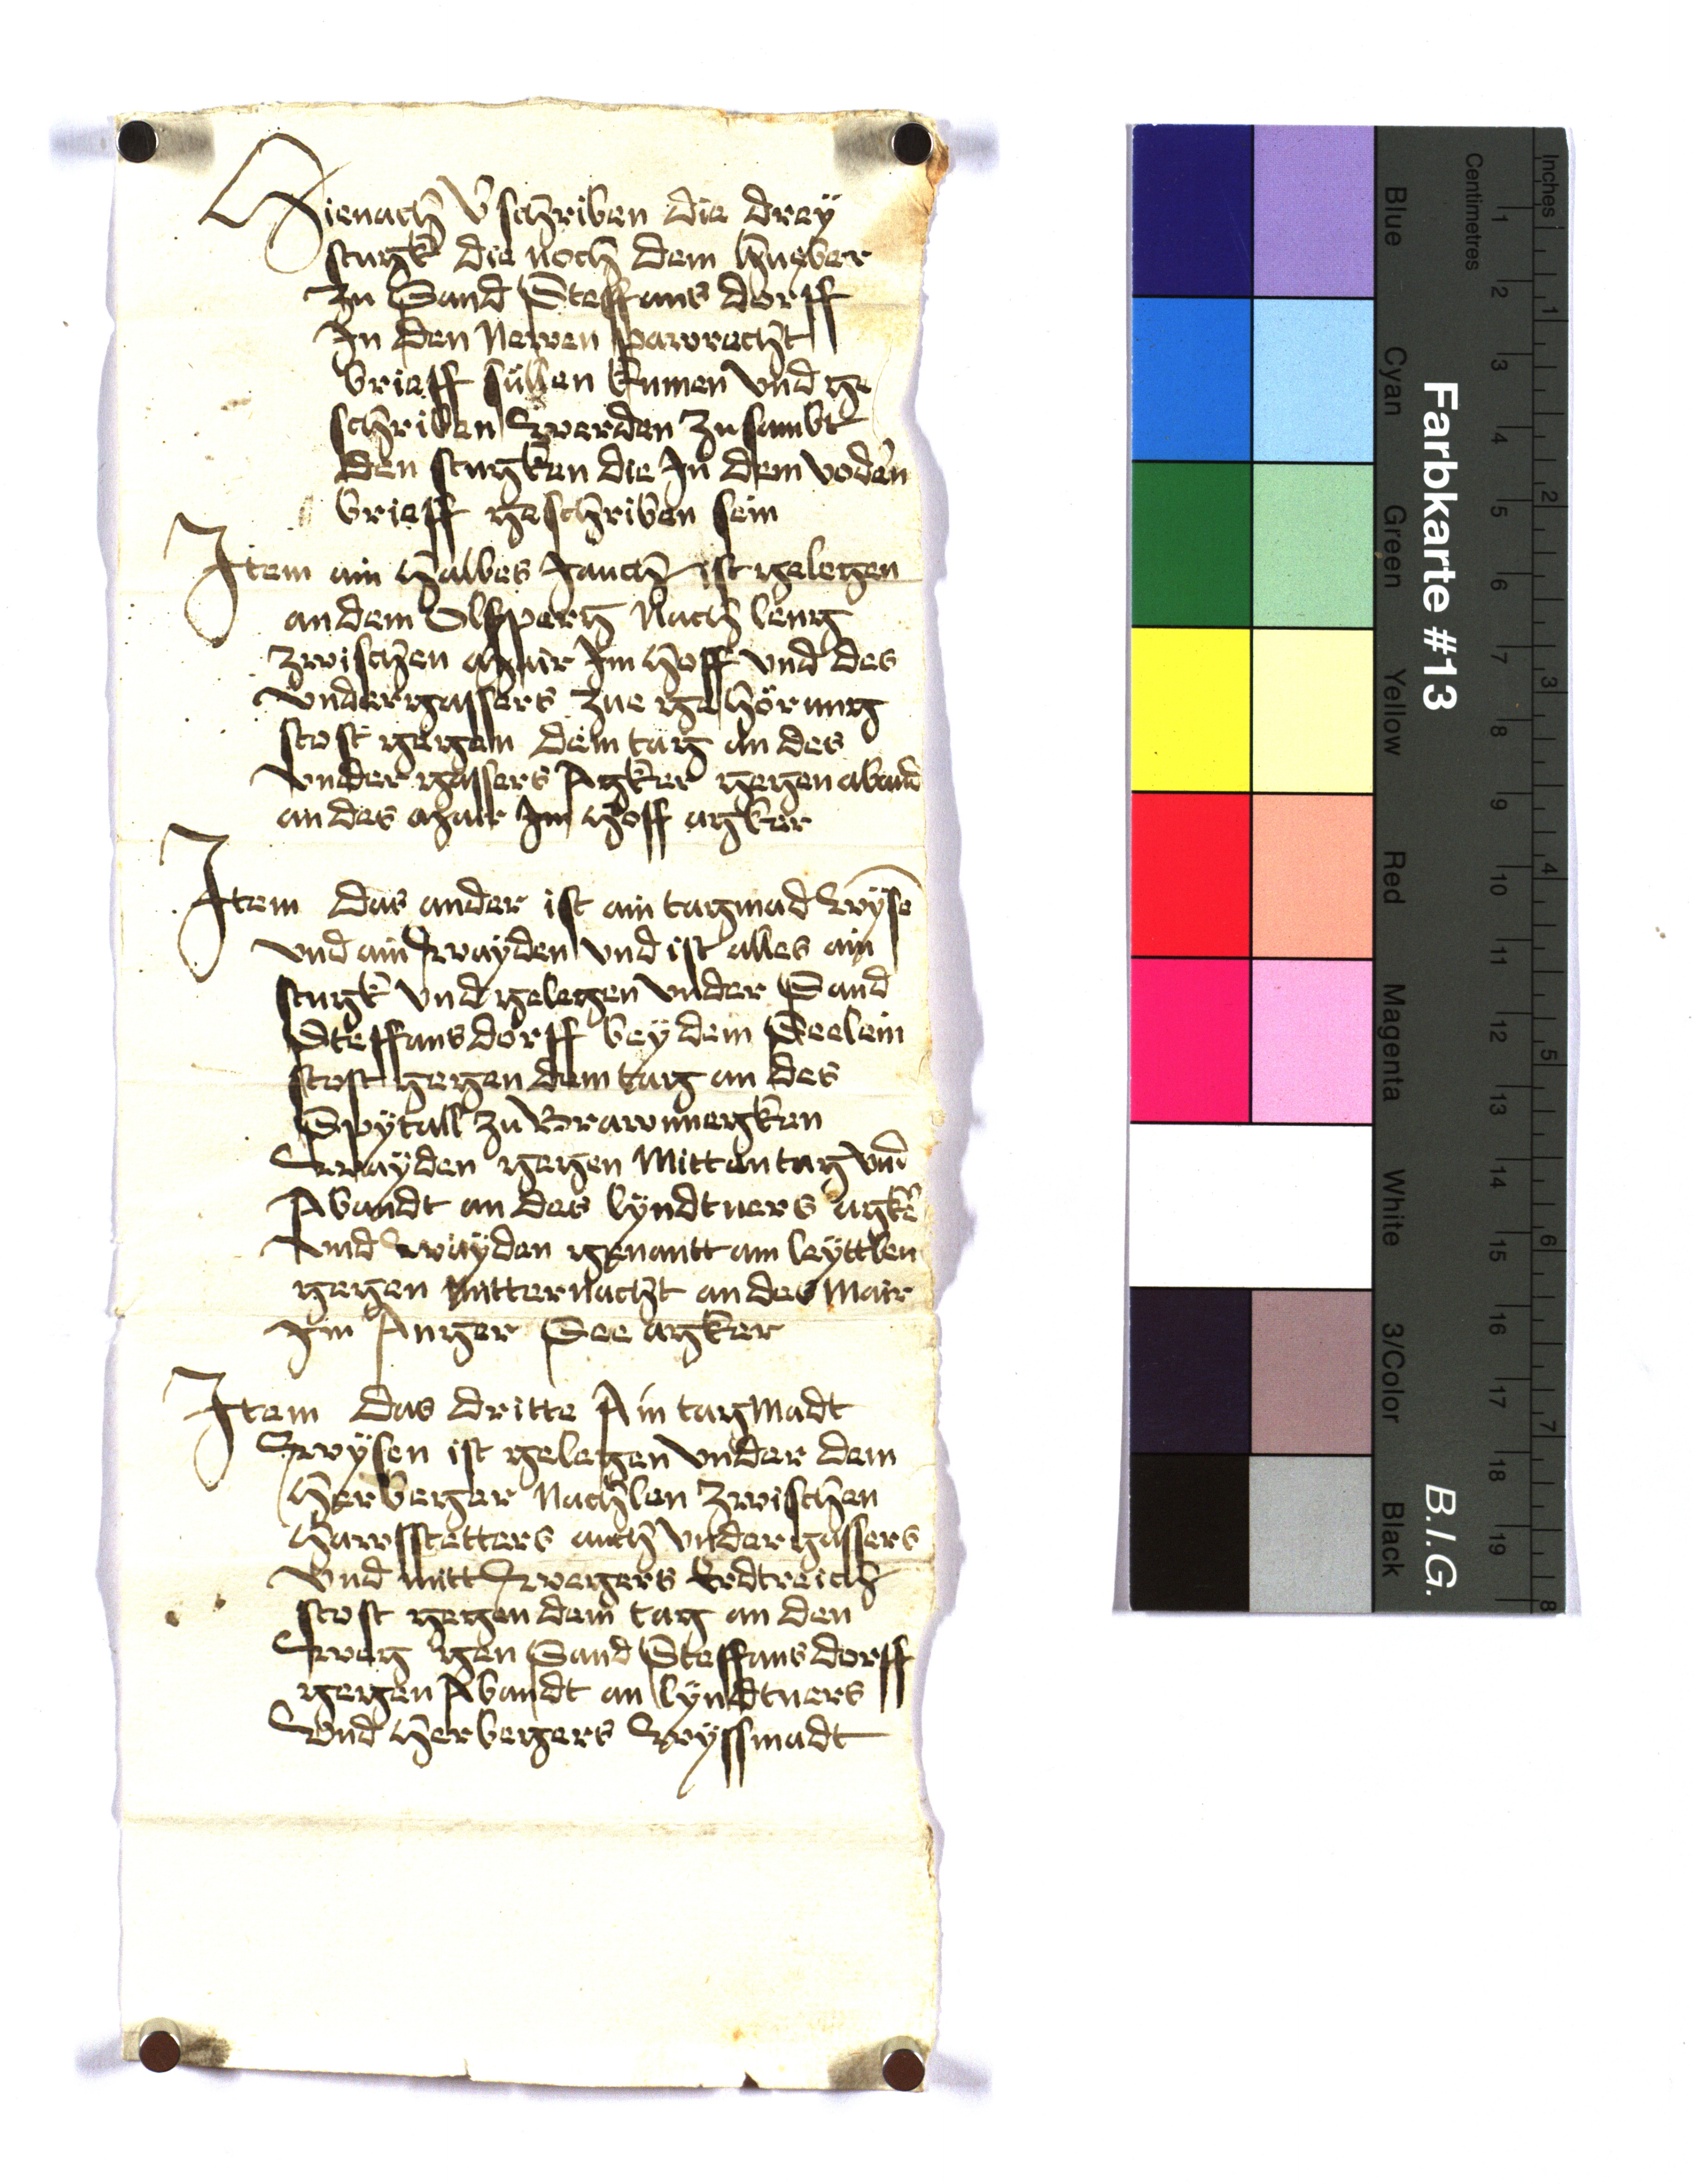 Hienach v̄schriben die dreÿ
stugk die noch dem hueber
zu Sand Steffans dorff
In den Newen pawrecht
brieff süllen kumen vnd ge
schriben werden zu sambt
den stugken die In dem vodern
brieff geschriben sein
Item ain halbes Jauch ist gelegen
an dem Olsperg Nach leng
zwischen mair Im hoff vnd des
vndergassers zue gehörung
stost gegen dem tag an des
vnder gassers Agker gegen abend
an des mair Im hoff agker
Item das ander ist ain tagmad wÿse
vnd ain waÿden vnd ist alles ain
stugk vnd gelegen vnder Sand
Steffansdorff beÿ dem Seelein
stost gegen dem tag an des
Spÿtall zu Brawneegken
waÿden gegen Mittentag vnd
Abendt an des lÿndtners agker
vnd waÿden genantt am leÿttlen
gegen mitternacht an des Mair
Im Anger See agker
Item das dritte Ain tagMadt
wÿsen ist gelegen vnder dem
herberger Nachlen zwischen
harrsstetters auch vndergassers
vnd mitt wegers Erdtreich
stost gegen dem tag an den
weg gen Sand Steffans dorff
gegen Abendt an lÿndtners
vnd herbergers wÿssmadt
Farbkarte #13
B.I.G.
Blue
Cyan
Green
Yellow
Red
Magenta
White
3/Color
Black
Centimetres
1 2 3 4 5 6 7 8 9 10 11 12 13 14 15 16 17 18 19
Inches
1 2 3 4 5 6 7 8